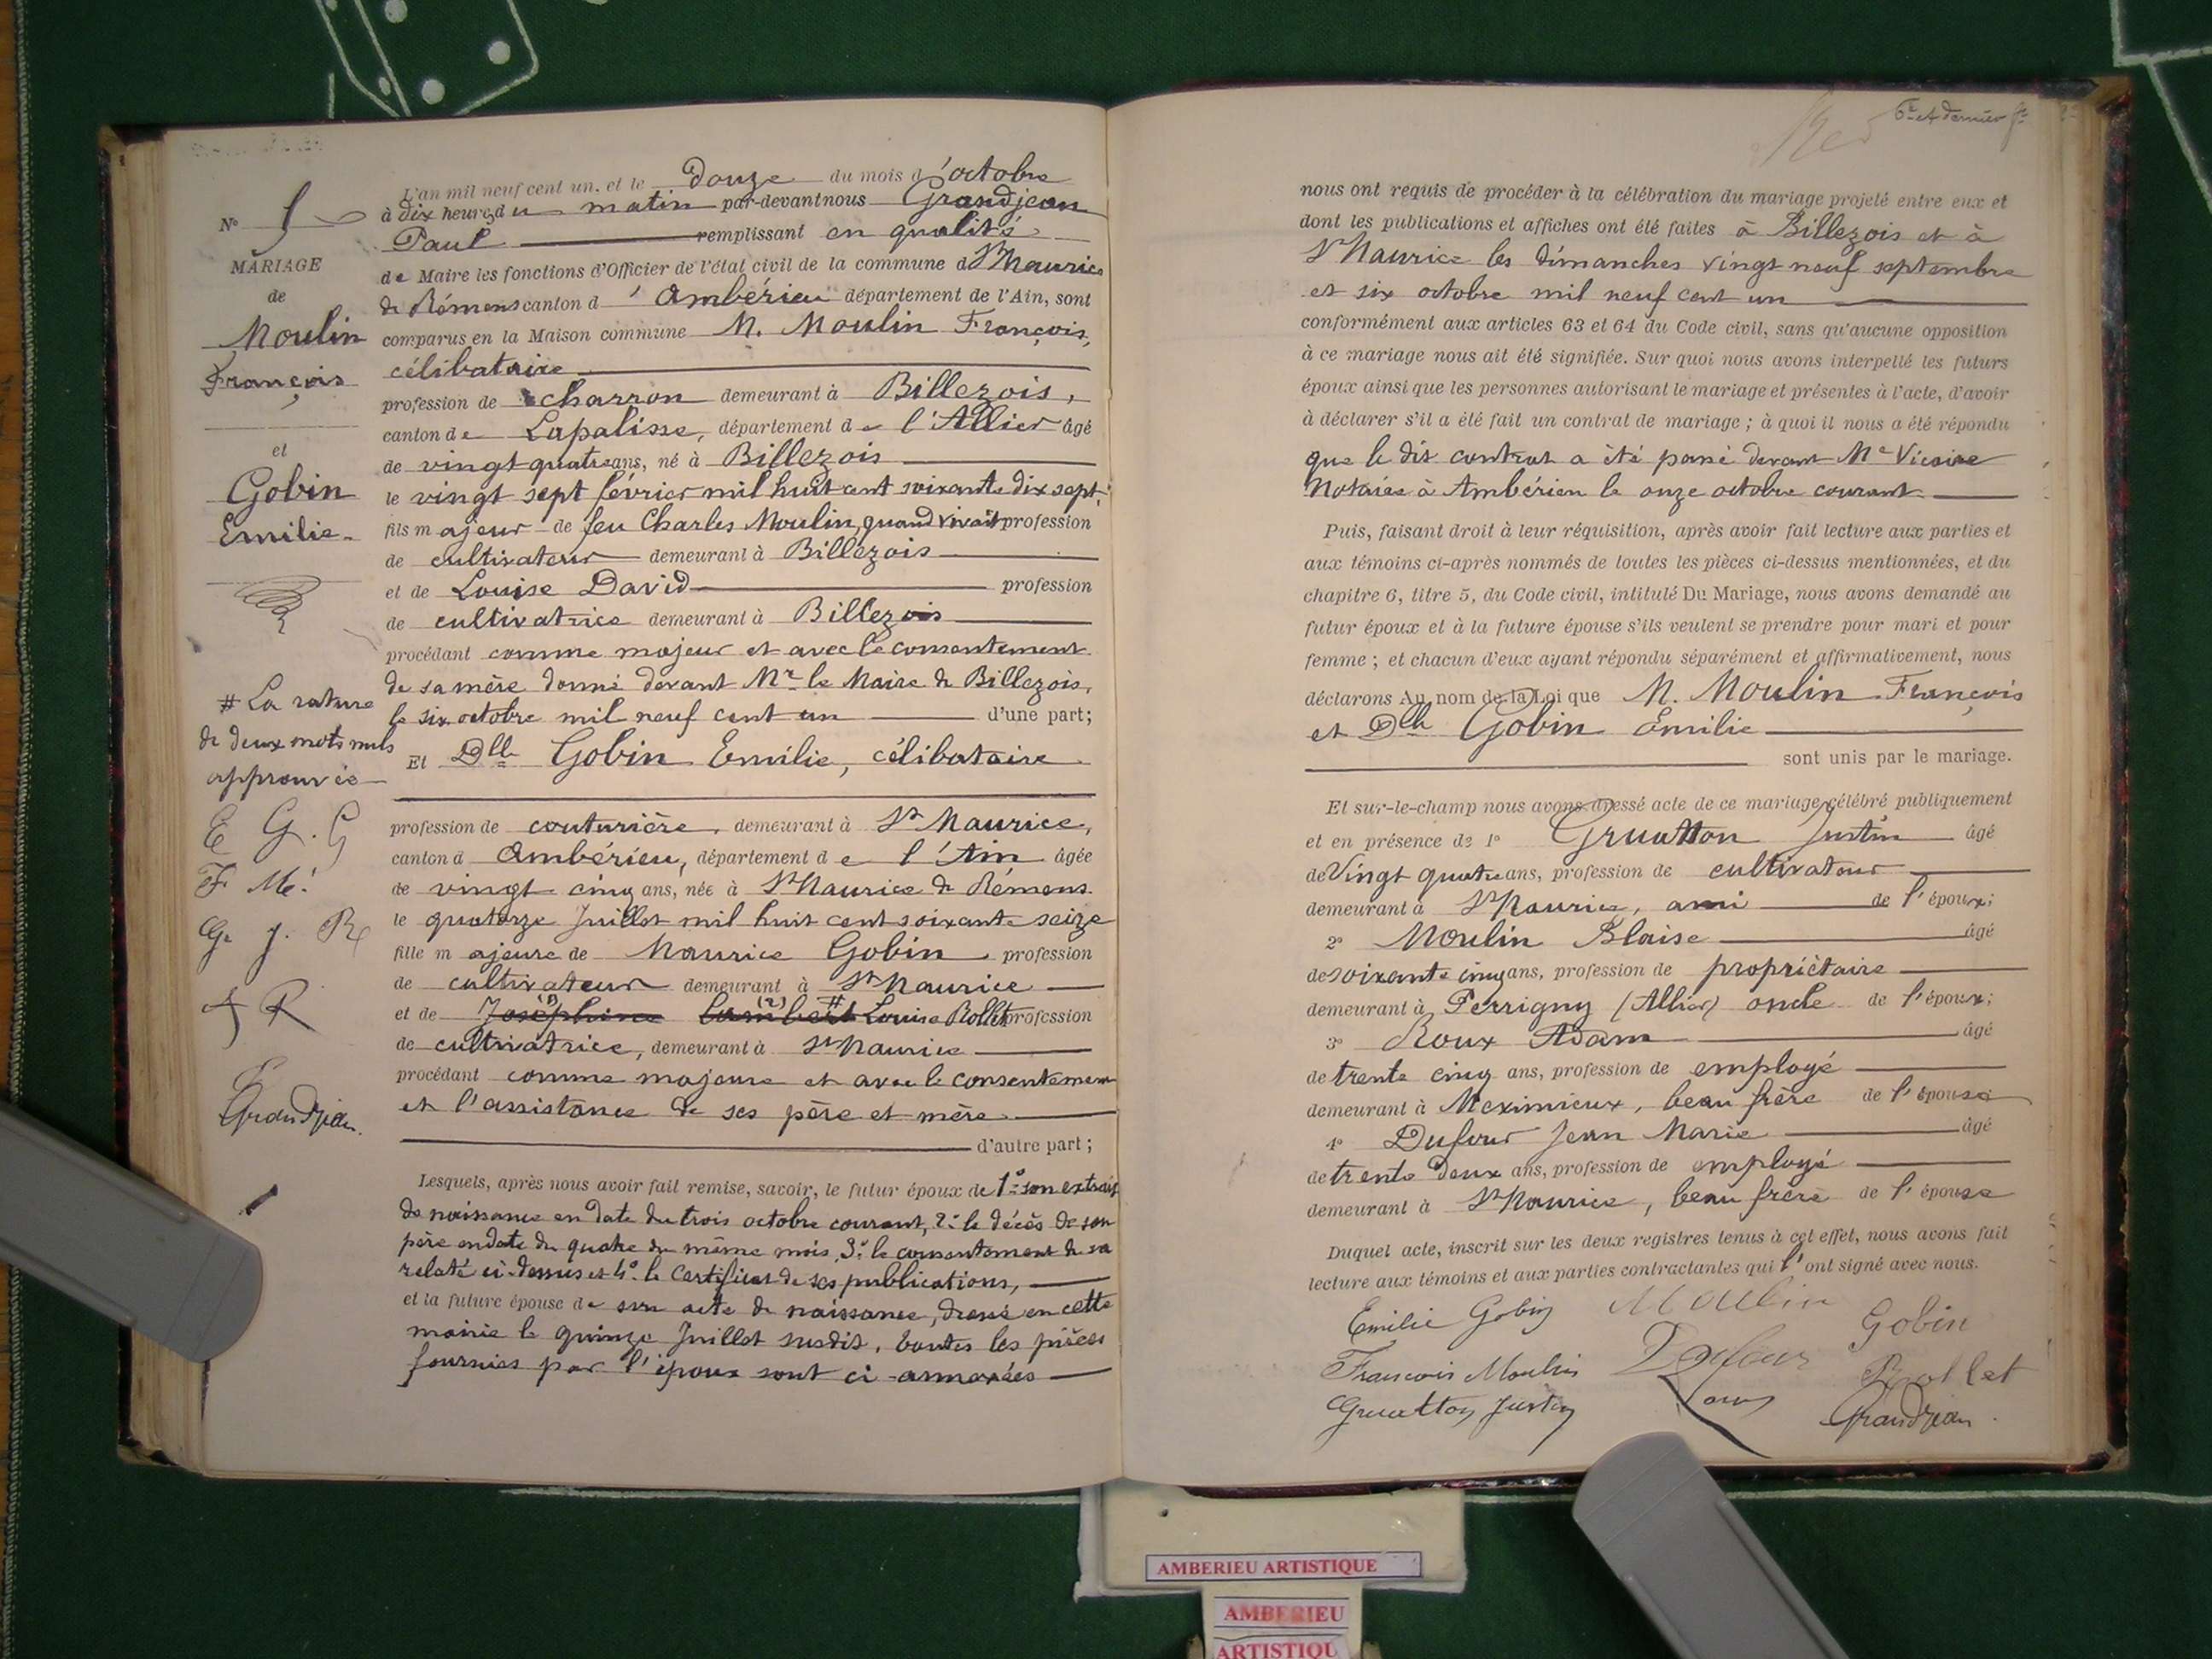 L'an mil neuf cent un, et le douze du mois d'octobre
à dix heures du matin par-devant nous Grandjean
Paul remplissant en qualité
de Maire les fonctions d'Officier de l'état civil de la commune de St Maurice
de Rémens canton d'Ambérieu département de l'Ain, sont
comparus en la Maison commune M. Moulin François,
célibataire
profession de charron demeurant à Billezois,
canton de Lapalisse, département de l'Allier âgé
de vingt quatre ans, né à Billezois
le vingt sept février mil huit cent soixante dix sept,
fils majeur de feu Charles Moulin, quand vivait profession
de cultivateur demeurant à Billezois
et de Louise David profession
de cultivatrice demeurant à Billezois
procédant comme majeur et avec le consentement
de sa mère donné devant Mr le Maire de Billezois,
le six octobre mil neuf cent un d'une part;
Et Dlle Gobin Emilie, célibataire
profession de couturière, demeurant à St Maurice,
canton d Ambérieu, département de l'Ain âgée
de vingt cinq ans, née à St Maurice de Rémens
le quatorze Juillet mil huit cent soixante seize
fille majeure de Maurice Gobin profession
de cultivateur demeurant à St Maurice
et de Joséphine (1) Lambert (2) # Louise Rollet profession
de cultivatrice, demeurant à St Maurice
procédant comme majeure et avec le consentement
et l'assistance de ses père et mère
d'autre part;
Lesquels, après nous avoir fait remise, savoir, le futur époux de 1° son extrait
de naissance en date du trois octobre courant, 2° le décès de son
père en date du quatre du même mois, 3° le consentement de sa
relaté ci-dessus et 4° le certificat de ses publications,
et la future épouse de son acte de naissance, dressé en cette
mairie le quinze Juillet susdit, toutes les pièces
fournies par l'époux sont ci-annexées
N°
MARIAGE
de
Moulin
François
et
Gobin
Emilie
# La rature
de deux mots nuls
approuvée
E G. G
F M.
G. J. R
Grandjean
6e et dernier
nous ont requis de procéder à la célébration du mariage projeté entre eux et
dont les publications et affiches ont été faites à Billezois et à
St Maurice les dimanches vingt neuf septembre
et six octobre mil neuf cent un
conformément aux articles 63 et 64 du Code civil, sans qu'aucune opposition
à ce mariage nous ait été signifiée. Sur quoi nous avons interpellé les futurs
époux ainsi que les personnes autorisant le mariage et présentes à l'acte, d'avoir
à déclarer s'il a été fait un contrat de mariage; à quoi il nous a été répondu
que le dit contrat a été passé devant Me Vicaire
Notaire à Ambérieu le onze octobre courant
Puis, faisant droit à leur réquisition, après avoir fait lecture aux parties et
aux témoins ci-après nommés de toutes les pièces ci-dessus mentionnées, et du
chapitre 6, titre 5, du Code civil, intitulé Du Mariage, nous avons demandé au
futur époux et à la future épouse s'ils veulent se prendre pour mari et pour
femme; et chacun d'eux ayant répondu séparément et affirmativement, nous
déclarons Au nom de la Loi que M. Moulin François
et Dlle Gobin Emilie
sont unis par le mariage.
Et sur-le-champ nous avons dressé acte de ce mariage célébré publiquement
et en présence de 1° Gruatton Justin âgé
de Vingt quatre ans, profession de cultivateur
demeurant à St Maurice, ami de l'époux;
2° Moulin Blaise âgé
de soixante cinq ans, profession de propriétaire
demeurant à Perrigny (Allier) oncle de l'époux;
3° Roux Adam âgé
de trente cinq ans, profession de employé
demeurant à Meximieux, beau frère de l'épouse
4° Dufour Jean Marie âgé
de trente deux ans, profession de employé
demeurant à St Maurice, beau frère de l'épouse
Duquel acte, inscrit sur les deux registres tenus à cet effet, nous avons fait
lecture aux témoins et aux parties contractantes qui l'ont signé avec nous.
Emilie Gobin Moulin Gobin
François Moulin Dufour Rollet
Gruatton Justin Roux Grandjean
AMBERIEU ARTISTIQUE
AMBERIEU
ARTISTIQU